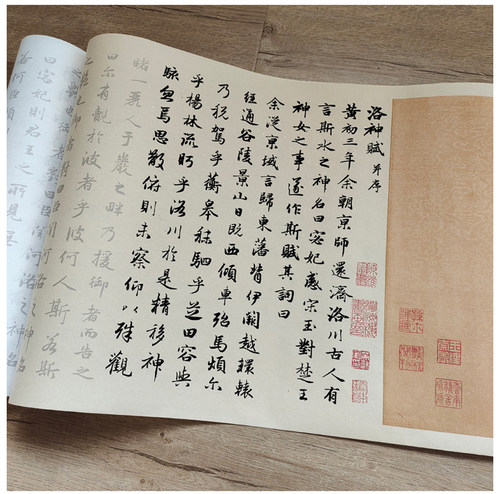 洛神賦 并序
黃初三年余朝京師還濟洛川古人有
言斯水之神名曰宓妃感宋玉對楚王
神女之事遂作斯賦其詞曰
余從京域言歸東藩背伊闕越轘轅
經通谷陵景山日既西傾車殆馬煩爾
乃稅駕乎蘅皋秣駟乎芝田容與
乎楊林流眄乎洛川於是精移神
駭忽焉思散俯則未察仰以殊觀
睹一麗人于巖之畔乃援御者而告之
曰爾有覿於彼者乎彼何人斯若斯
河洛之神名
曰宓妃則君王之所見